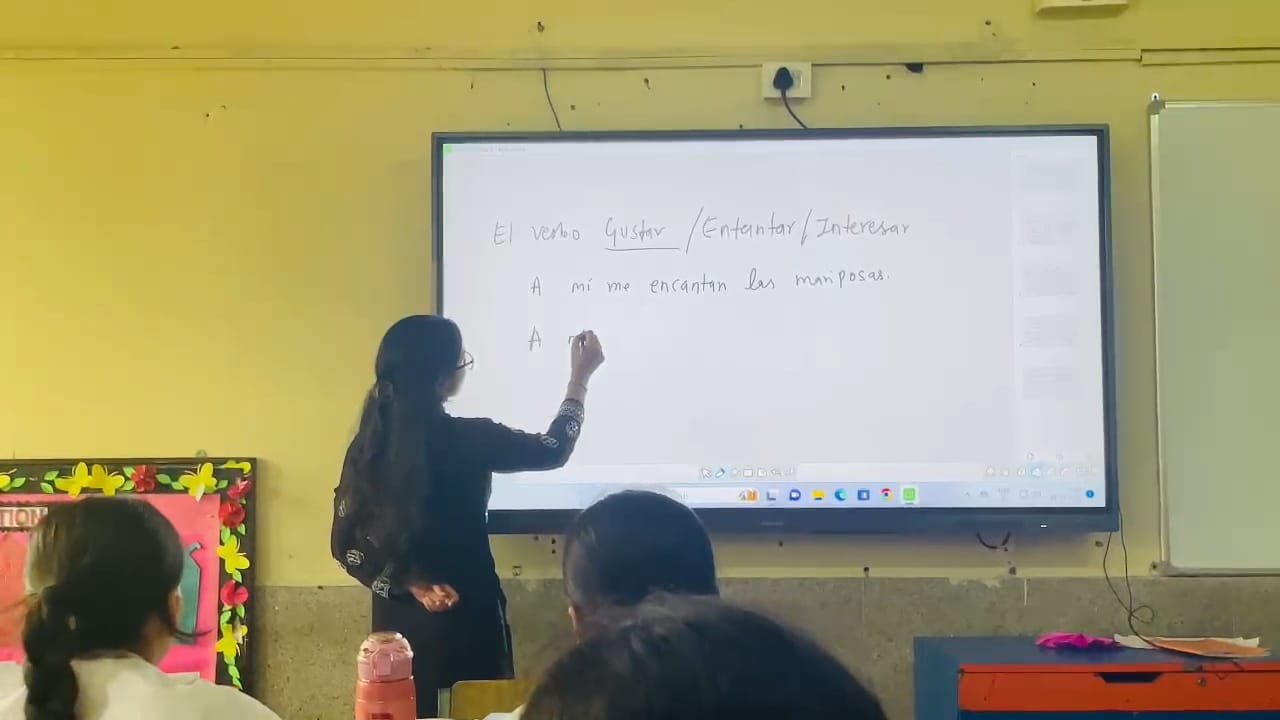 El verbo Gustar / Entantar / Interesar
A mí me encantan las mariposas.
A
TION